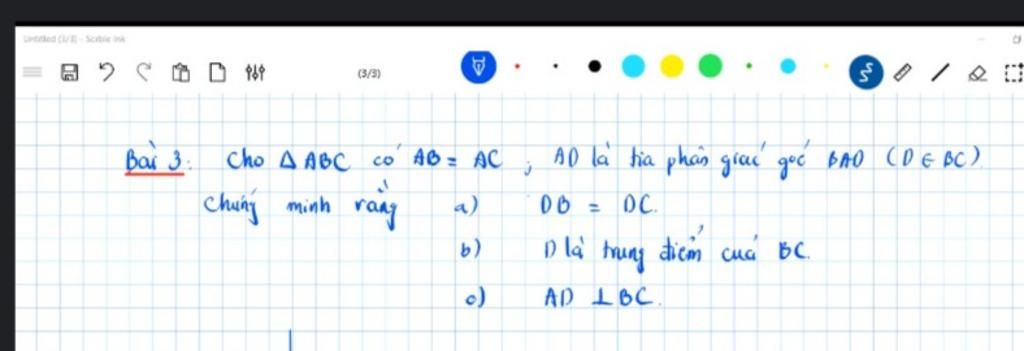 Untitled (3/3) - Scrble Ink
(3/3)
Bài 3: Cho Δ ABC có AB = AC ; AD là tia phân giác góc BAD (D ∈ BC)
Chứng minh rằng a) DB = DC.
b) D là trung điểm của BC.
c) AD ⊥ BC.